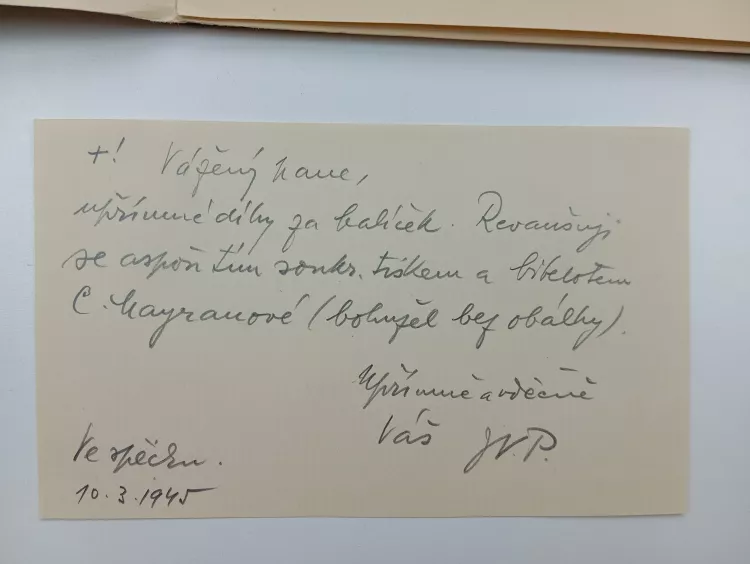 +! Vážený pane,
upřímné díky za balíček. Revanšuji
se aspoň tím soukr. tiskem a bibelotem
C. Mayranové (bohužel bez obálky).
Upřímně a vděčně
Váš JV.P.
Ve spěchu.
10.3.1945